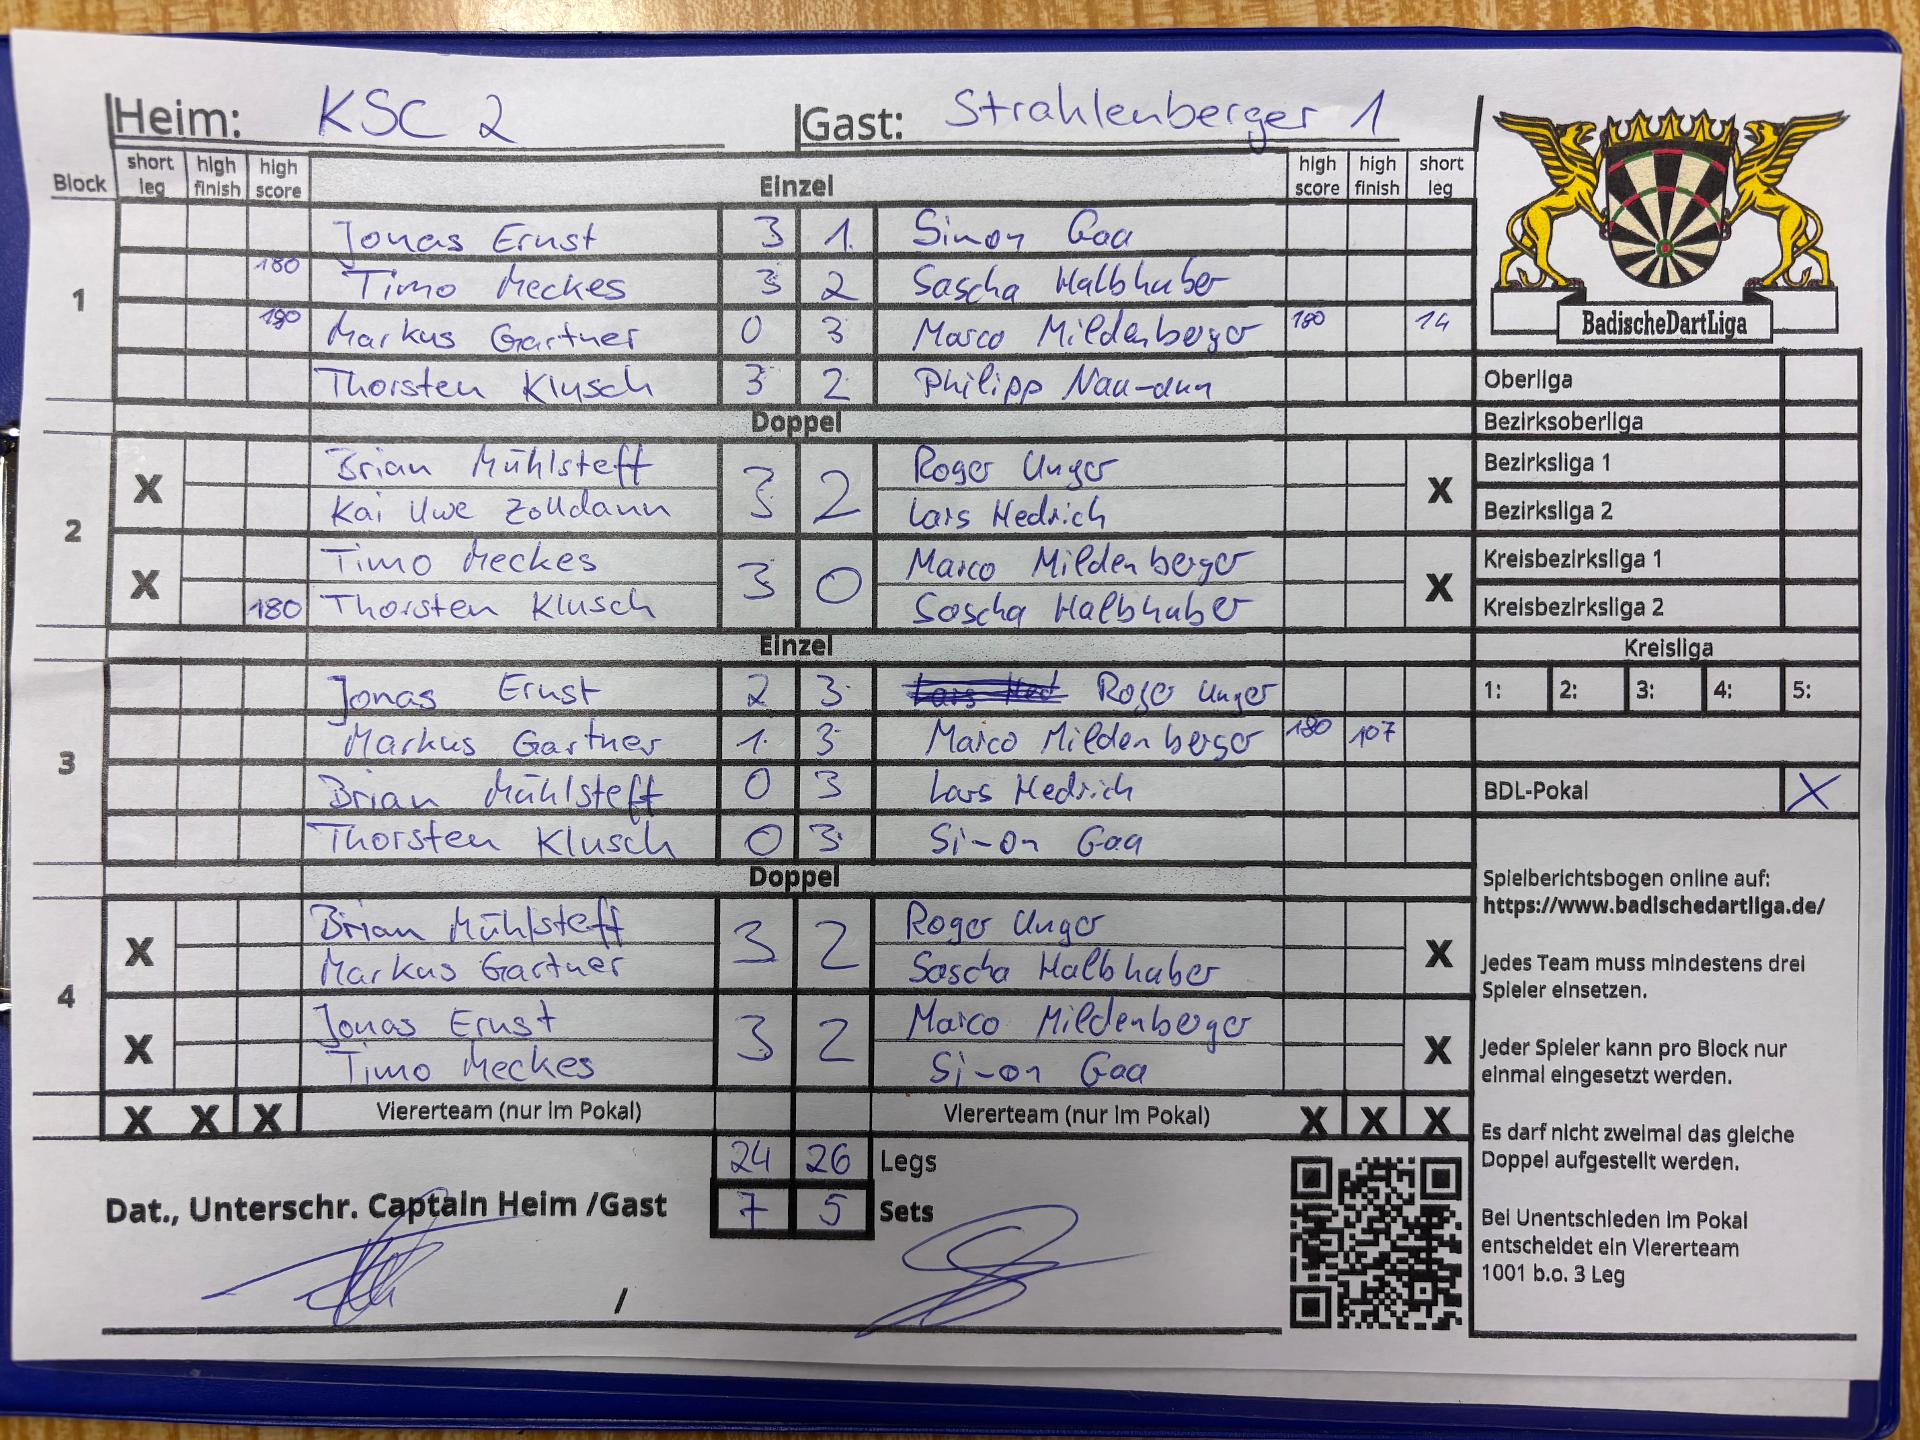 Heim: KSC 2 Gast: Strahlenberger 1
Block short leg high finish high score Einzel high score high finish short leg
1
Jonas Ernst 3 1 Simon Gaa
180 Timo Meckes 3 2 Sascha Halbhuber
180 Markus Gartner 0 3 Marco Mildenberger 180 14
Thorsten Klusch 3 2 Philipp Naumann
Doppel
2
X Brian Mühlsteff 3 2 Roger Unger X
Kai Uwe Zolldann Lars Hedrich
X Timo Meckes 3 0 Marco Mildenberger X
180 Thorsten Klusch Sascha Halbhuber
Einzel
3
Jonas Ernst 2 3 Roger Unger
Markus Gartner 1 3 Marco Mildenberger 180 107
Brian Mühlsteff 0 3 Lars Hedrich
Thorsten Klusch 0 3 Simon Gaa
Doppel
4
X Brian Mühlsteff 3 2 Roger Unger X
Markus Gartner Sascha Halbhuber
X Jonas Ernst 3 2 Marco Mildenberger X
Timo Meckes Simon Gaa
X X X Viererteam (nur im Pokal) Viererteam (nur im Pokal) X X X
24 26 Legs
Dat., Unterschr. Captain Heim /Gast 7 5 Sets
/
BadischeDartLiga
Oberliga
Bezirksoberliga
Bezirksliga 1
Bezirksliga 2
Kreisbezirksliga 1
Kreisbezirksliga 2
Kreisliga
1: 2: 3: 4: 5:
BDL-Pokal X
Spielberichtsbogen online auf:
https://www.badischedartliga.de/
Jedes Team muss mindestens drei
Spieler einsetzen.
Jeder Spieler kann pro Block nur
einmal eingesetzt werden.
Es darf nicht zweimal das gleiche
Doppel aufgestellt werden.
Bei Unentschieden im Pokal
entscheidet ein Viererteam
1001 b.o. 3 Leg